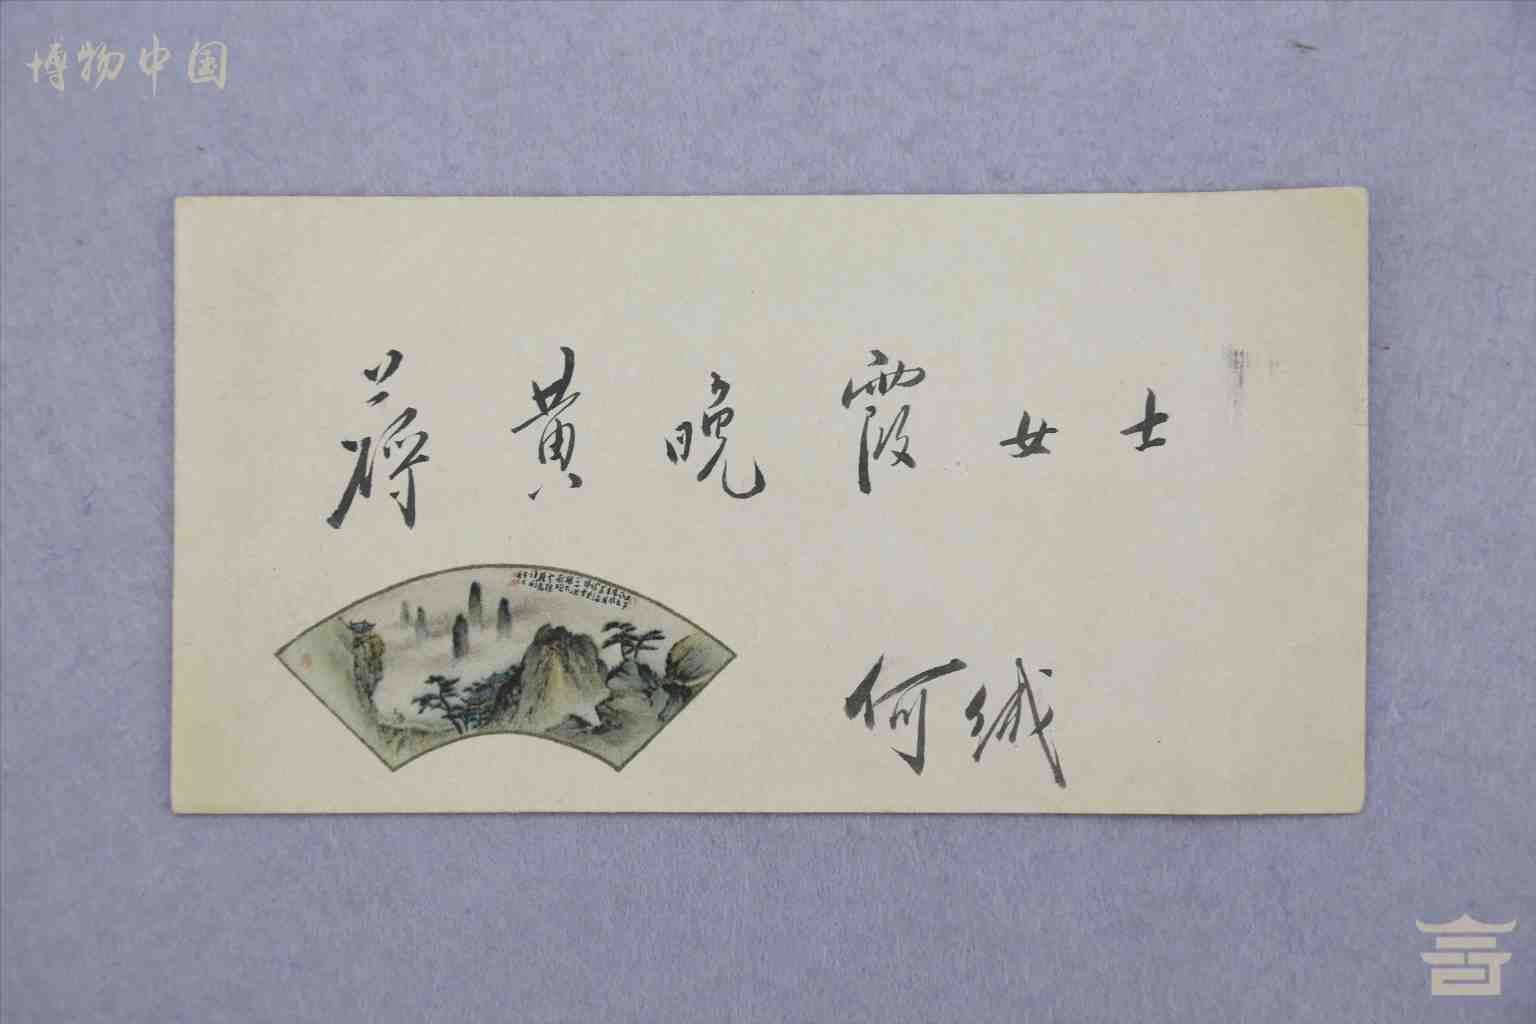 博物中国
蒋黄晚霞女士
何绒